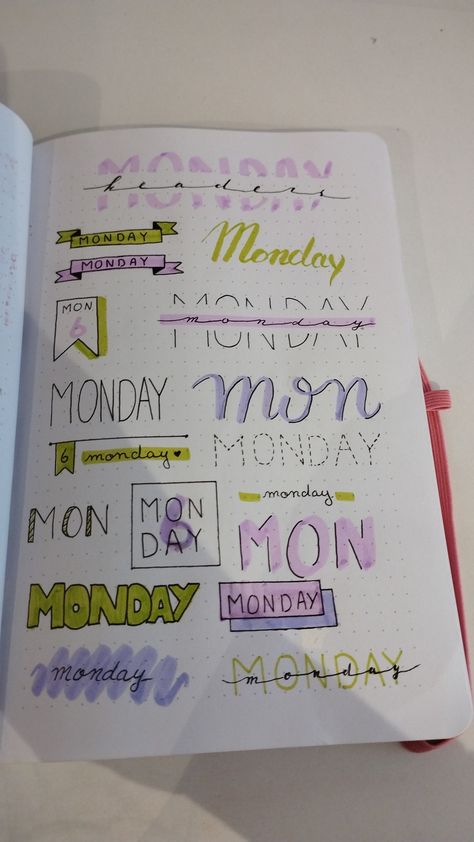 MONDAY
headers
MONDAY
MONDAY
Monday
MON
6
MONDAY
monday
MONDAY
mon
6 monday
MONDAY
monday
MON
MON
DAY
6
MON
MONDAY
MONDAY
monday
MONDAY
monday